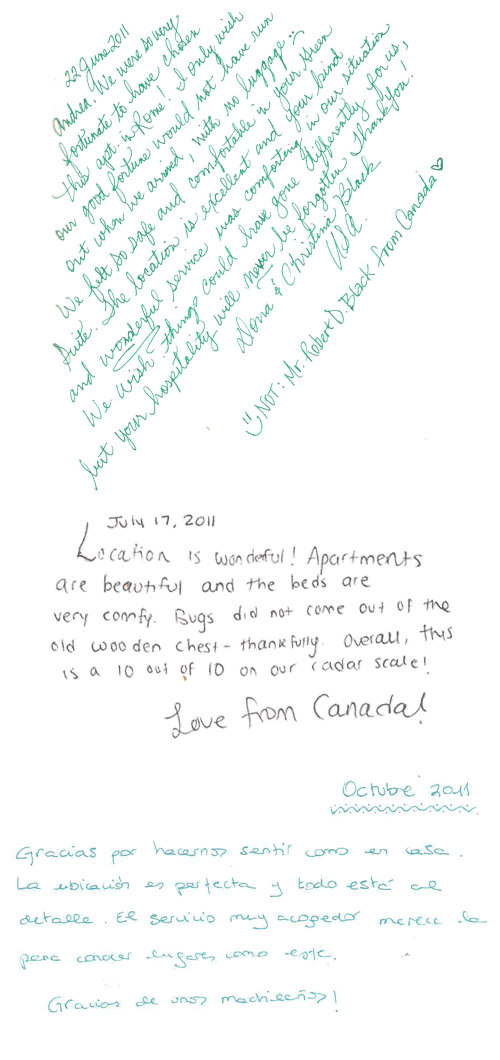 22 June 2011
Andrea. We were so very
fortunate to have chosen
this apt. in Rome! I only wish
our good fortune would not have run
out when we arrived, with no luggage :-
We felt so safe and comfortable in your green
Suite. The location is excellent and your kind
and wonderful service was comforting in our situation
We wish things could have gone differently for us,
but your hospitality will never be forgotten Thank You!
Dona & Christina Black
USA.
NOT: Mr. Robert D. Black from Canada ♡
July 17, 2011
Location is wonderful! Apartments
are beautiful and the beds are
very comfy. Bugs did not come out of the
old wooden chest - thankfully. Overall, this
is a 10 out of 10 on our radar scale!
Love from Canada!
Octubre 2011
Gracias por hacernos sentir como en casa.
La ubicación es perfecta y todo está al
detalle. El servicio muy acogedor merece la
pena conocer lugares como este.
Gracias de unos madrileños!